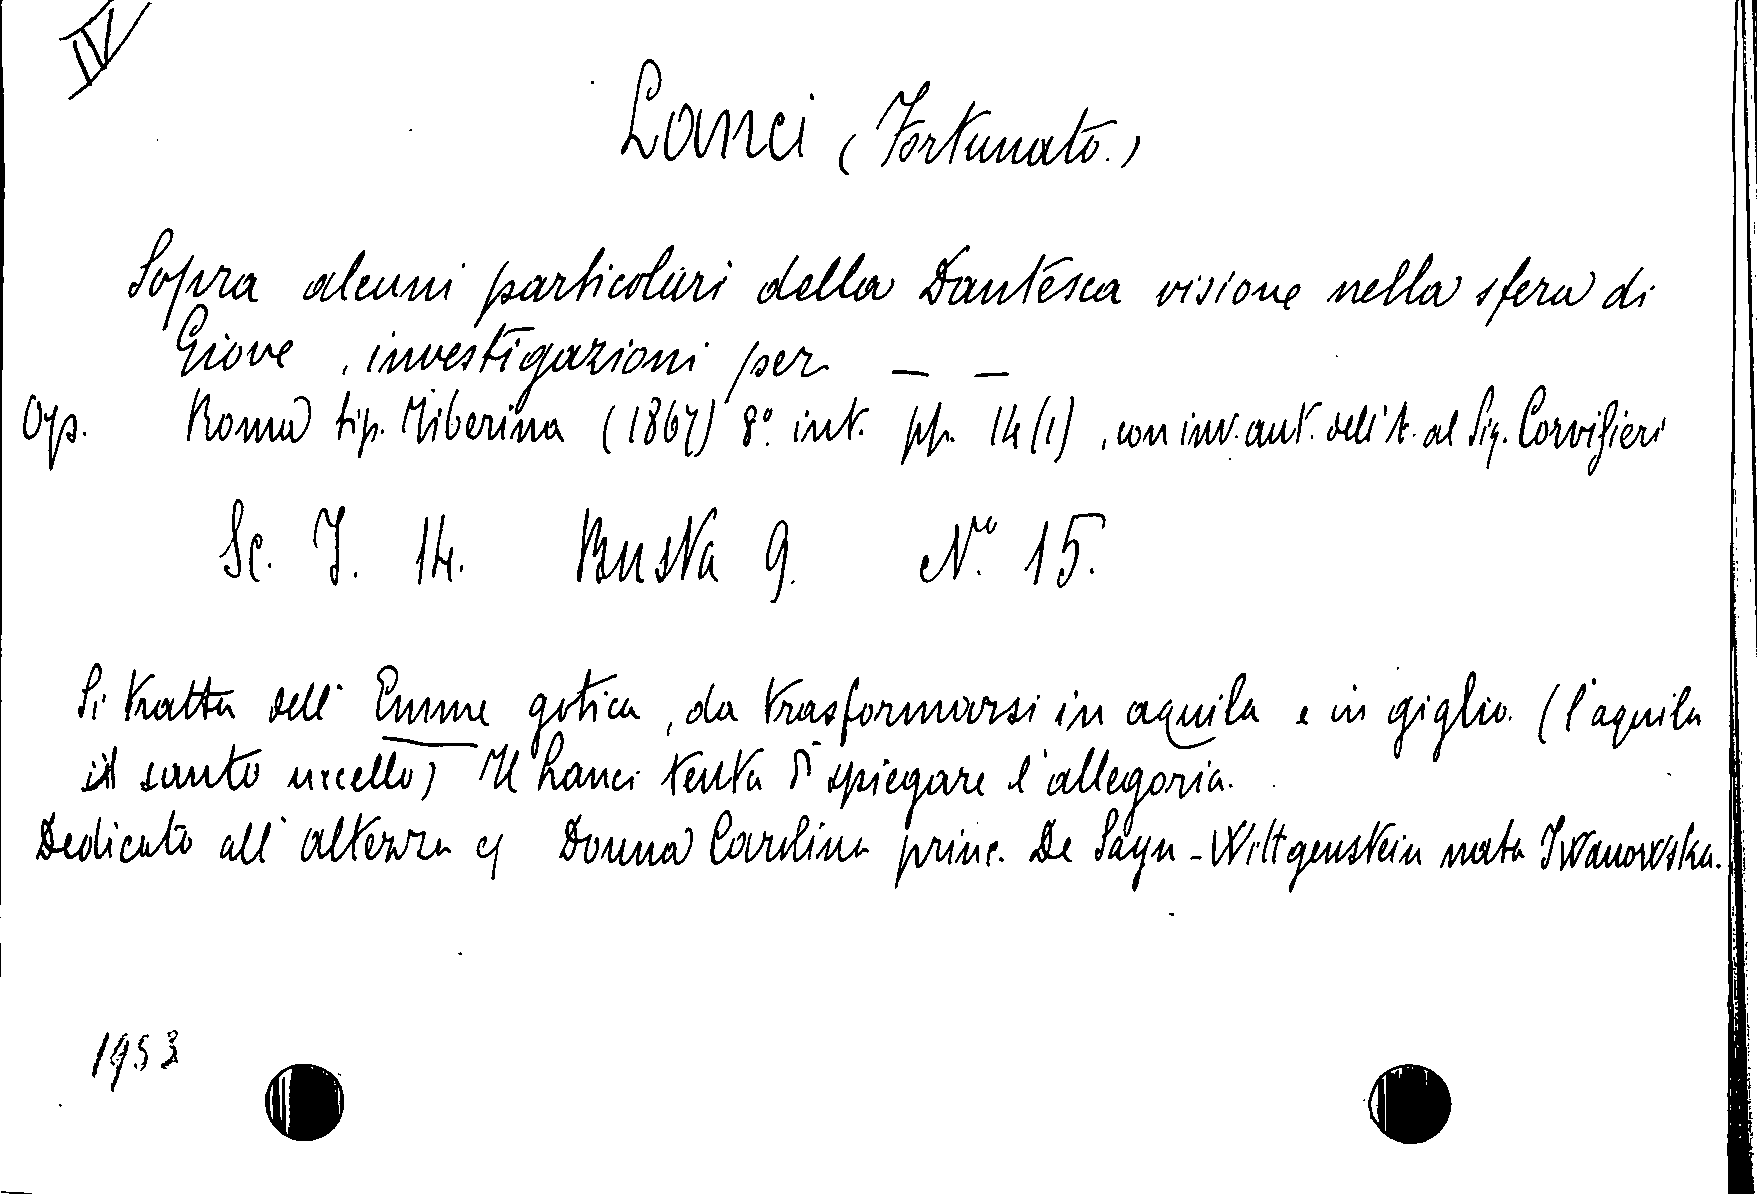 IV
Lanci (Fortunato.)
Sopra alcuni particolari della Dantesca visione nella sfera di
Giove, investigazioni per — —
Op. Roma tip. Tiberina (1867) 8.° int. pp. 14(1), con inv. aut. dell'A. al Sig. Corvisieri
Sc. I. 14. Busta 9. N.° 15.
Si tratta dell' Emme gotica, da trasformarsi in aquila e in giglio. (l'aquila
il santo uccello) Il Lanci tenta di spiegare l'allegoria.
Dedicato all' altezza di Donna Carolina princ. De Sayn-Wittgenstein nata Iwanowska.
1953